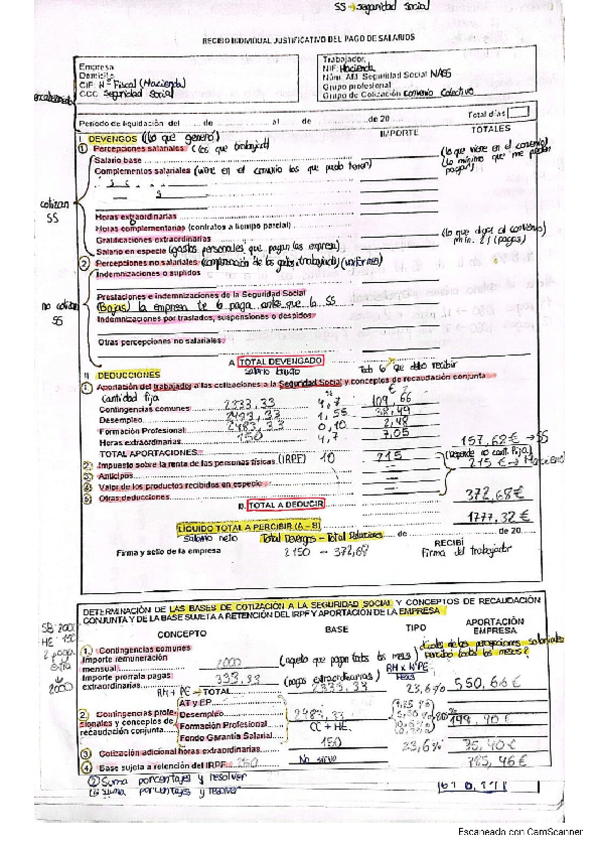 SS → Seguridad Social
RECIBO INDIVIDUAL JUSTIFICATIVO DEL PAGO DE SALARIOS
Empresa
Domicilio
CIF Nº Fiscal (Hacienda)
CCC Seguridad Social
Trabajador
NIF Hacienda
Núm. Afil. Seguridad Social NASS
Grupo profesional
Grupo de Cotización convenio colectivo
Periodo de liquidación del ... de ... al ... de ... de 20 ... Total días
I. DEVENGOS (lo que genero) IMPORTE TOTALES
① Percepciones salariales (las que trabajad)
Salario base (lo que viene en el convenio)
Complementos salariales (viene en el convenio los que puedo tener) (lo mínimo que me pueden pagar)
cotizan SS
Horas extraordinarias
Horas complementarias (contratos a tiempo parcial)
Gratificaciones extraordinarias (lo que diga el convenio)
Salario en especie (gastos personales que pagan las empresa) mín. 2 (pagas)
② Percepciones no salariales (compensación de los gastos trabajador) (uniformes)
Indemnizaciones o suplidos
no cotizan SS
Prestaciones e indemnizaciones de la Seguridad Social
(Bajas) la empresa te lo paga antes que la SS
Indemnizaciones por traslados, suspensiones o despidos
Otras percepciones no salariales
A. TOTAL DEVENGADO
salario bruto Todo lo que debo recibir
II. DEDUCCIONES
① Aportación del trabajador a las cotizaciones a la Seguridad Social y conceptos de recaudación conjunta
Cantidad fija % €
Contingencias comunes 2333,33 4,7 109,66
Desempleo 2483,33 1,55 38,49
Formación Profesional 2483,33 0,10 2,48
Horas extraordinarias 150 4,7 7,05
TOTAL APORTACIONES 157,68€ → SS
② Impuesto sobre la renta de las personas físicas (IRPF) 10 215 215 €
③ Anticipos
④ Valor de los productos recibidos en especie
⑤ Otras deducciones
B. TOTAL A DEDUCIR 372,68€
LÍQUIDO TOTAL A PERCIBIR (A – B) 1777,32 €
salario neto Total Devengos - Total Deducciones de de 20
Firma y sello de la empresa 2150 – 372,68 RECIBÍ
Firma del trabajador
DETERMINACIÓN DE LAS BASES DE COTIZACIÓN A LA SEGURIDAD SOCIAL Y CONCEPTOS DE RECAUDACIÓN
CONJUNTA Y DE LA BASE SUJETA A RETENCIÓN DEL IRPF Y APORTACIÓN DE LA EMPRESA
CONCEPTO BASE TIPO APORTACIÓN EMPRESA
SB: 2000
HE: 150
2 pagas
2000
1. Contingencias comunes
Importe remuneración mensual 2000 (aquello que pagan todos los meses)
Importe prorrata pagas extraordinarias 333,33 (pagas extraordinarias)
RM + PE → TOTAL 2333,33 23,6% 550,66 €
2. Contingencias profesionales y conceptos de recaudación conjunta
AT y EP
Desempleo 2483,33
Formación Profesional CC + HE
Fondo Garantía Salarial
3. Cotización adicional horas extraordinarias 150 23,6% 35,40 €
4. Base sujeta a retención del IRPF No sirve 785,46 €
② Suma porcentajes y resolver
Suma porcentajes y resolver
Escaneado con CamScanner